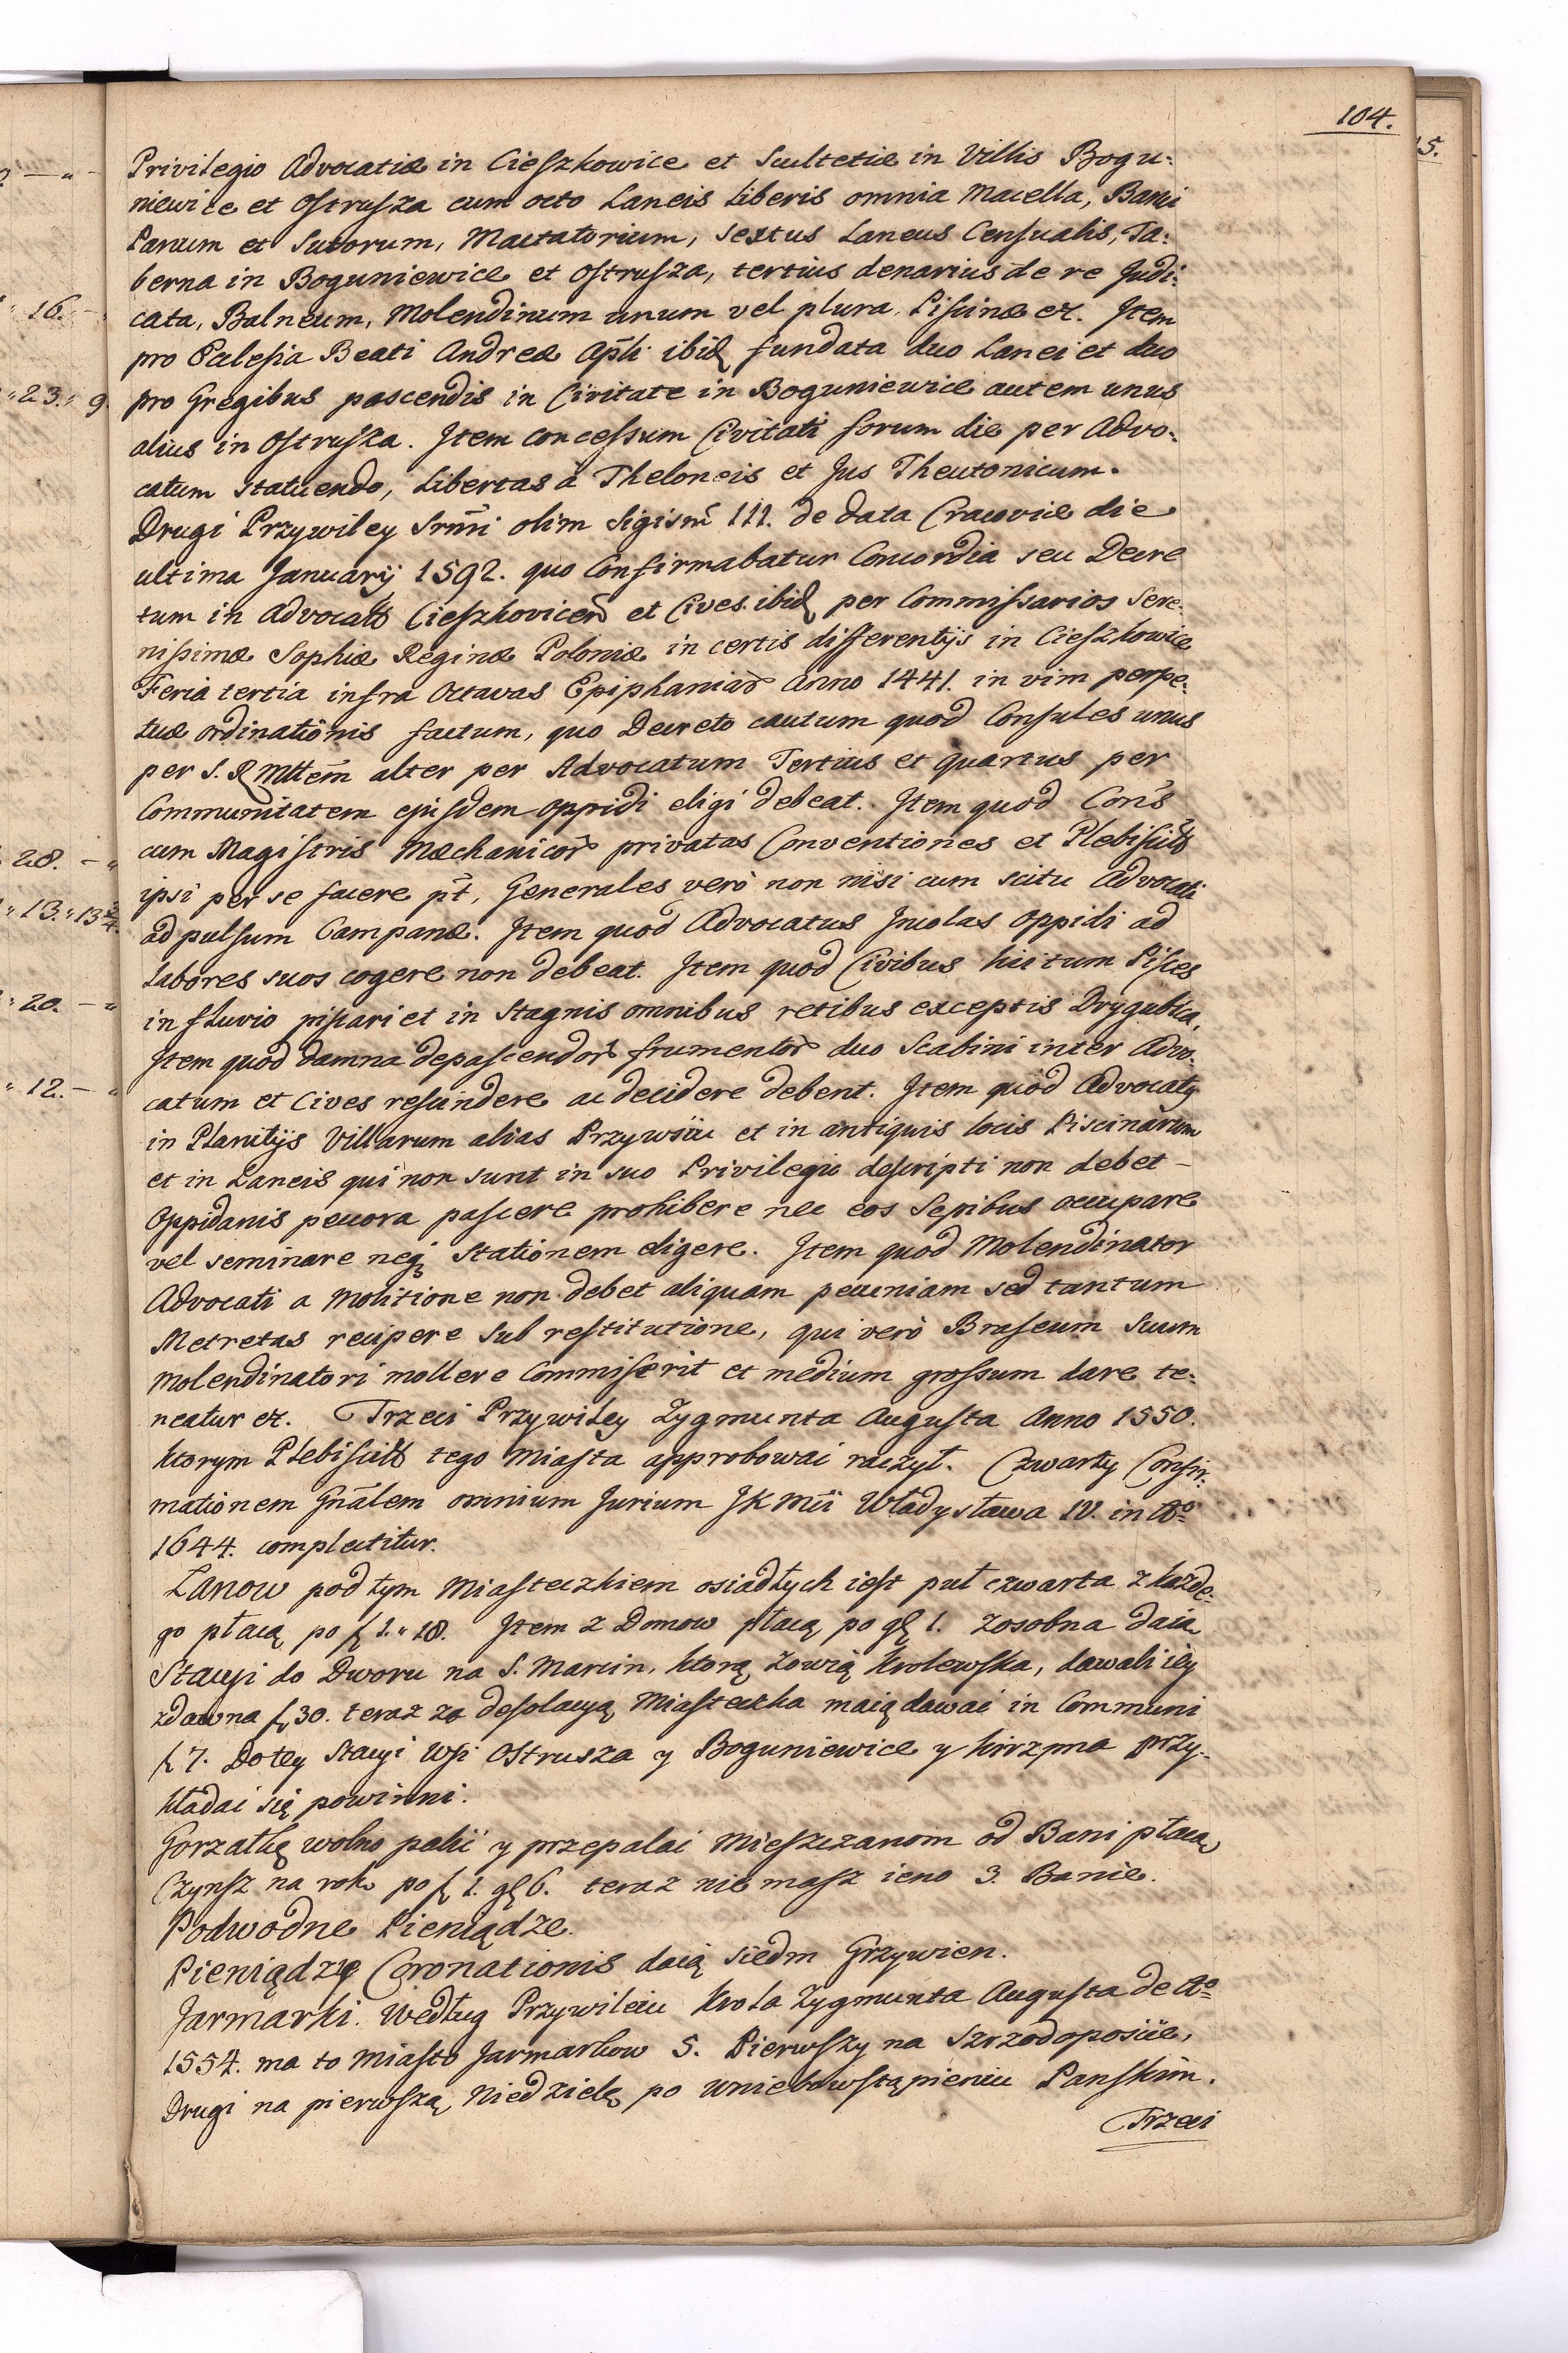 104.
15.
Privilegio Advocatiæ in Cieszkowice et Scultetiæ in Villis Bogu:
niewice et Ostrusza cum octo Laneis Liberis omnia Macella, Banci
Panum et Sutorum, Mactatorium, sextus Laneus Censualis, Ta:
berna in Boguniewice et Ostrusza, tertius denarius de re Judi:
cata, Balneum, Molendinum unum vel plura, Piscinæ etc. Item
pro Eclesia Beati Andreæ Apłi ibid fundata duo Lanei et duo
pro Gregibus pascendis in Civitate in Boguniewice autem unus
alius in Ostrusza. Item concessum Civitati forum die per Advo:
catum statuendo, Libertas à Theloneis et Jus Theutonicum.
Drugi Przywiley Srm̄i olim Sigism̄ III. de data Cracoviæ die
ultima Januarij 1592. quo Confirmabatur Concordia seu Decre
tum in Advocatū Cieszkovicen̄ et Cives ibid per Commissarios Sere:
nissimæ Sophiæ Reginæ Poloniæ in certis differentijs in Cieszkowice
Feria tertia infra Octavas Epiphaniar̄ Anno 1441. in vim perpe:
tuæ ordinatiōnis factum, quo Decreto cautum quod Consules unus
per S. R Mttem̄ alter per Advocatum Tertius et quartus per
Communitatem ejusdem oppidi eligi debeat. Item quod Con̄s
cum Magistris Mechanicor̄ privatas Conventiones et Plebiscita
ipsi per se facere pt̄, Generales verò non nisi cum scitu Advocati
ad pulsum Campanæ. Item quod Advocatus Incolas oppidi ad
labores suos cogere non debeat. Item quod Civibus licitum Pisces
in fluvio piscari et in Stagnis omnibus retibus exceptis Drygubica,
Item quod damna depascendor̄ frumentor̄ duo Scabini inter Advo:
catum et Cives resundere ac decidere debent. Item quod Advocatq
in Planitijs Villarum alias Przywsiu et in antiquis locis Piscinarum
et in Laneis qui non sunt in suo Privilegio descripti non debet –
Oppidanis pecora pascere prohibere nec eos Sepibus occupare
vel seminare neq̨ Stationem eligere. Item quod Molendinator
Advocati a Molitione non debet aliquam pecuniam sed tantum
Metretas recipere sub restitutione, qui verò Braseum suum
Molendinatori mollere Commiserit et medium grossum dare te:
neatur etc. Trzeci Przywiley Zygmunta Augusta Anno 1550.
ktorym Plebiscita tego Miasta approbowai raczył. Czwarty Confir:
mationem Gnālem omnium Jurium JK Mci Władysława IV. in Ao
1644. complectitur.
Łanow pod tym Miasteczkiem osiadłych iest puł czwarta z każde:
go płacą po f 1. " 18. Item z Domow płacą po gę 1. zosobna daią
Stacyi do Dworu na S. Marcin, ktorą zowią Krolewska, dawali iey
zdawna f 30. teraz za desolacyą Miasteczka maią dawai in Communi
f 7. Do tey Stacyi Wsi Ostrusza y Boguniewice y kirzpna przy-
kładai się powinni.
Gorzałkę wolno palić y przepalai Mieszczanom od Bani płacą
Czynsz na rok po f 1. gę 6. teraz nie masz ieno 3. Banie.
Podwodne Pieniądze.
Pieniądzy Coronationis daią siedm Grzywien.
Jarmarki. Według Przywileiu Krola Zygmunta Augusta de Ao
1554. ma to Miasto Jarmarkow 5. Pierwszy na Szrzodoposcie,
Drugi na pierwszą Niedzielę po Wniebowstąpieniu Panskim.
Trzeci
16. –
" 23. " 9
28. – "
" 13. " 13 2/4.
" 20. – "
" 12. – "